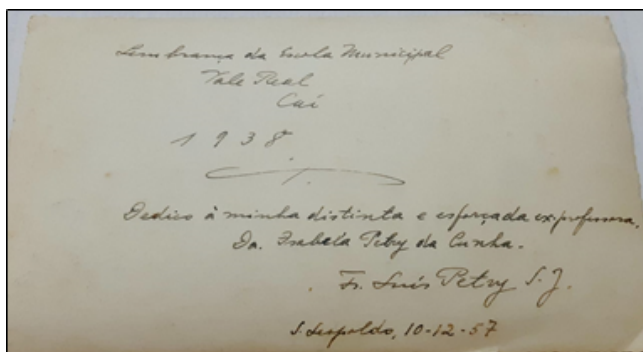 Lembrança da Escola Municipal
Vale Real
Caí
1938
Dedico à minha distinta e esforçada ex-professora,
Da. Isabela Petry da Cunha.
Fr. Luís Petry S. J.
S. Leopoldo, 10-12-57